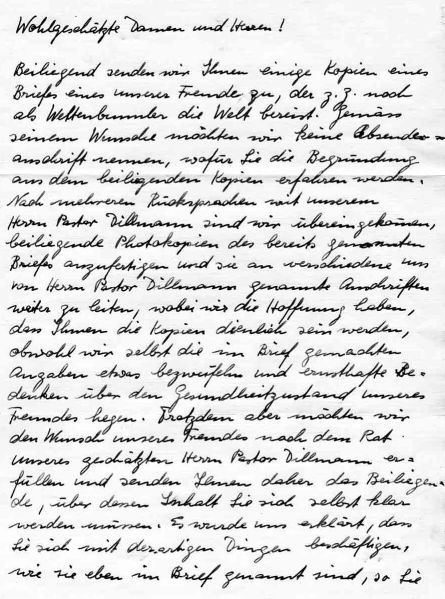 Wohlgeschätzte Damen und Herren!
Beiliegend senden wir Ihnen einige Kopien eines
Briefes eines unserer Freunde zu, der z.Z. noch
als Weltenbummler die Welt bereist. Gemäss
seinem Wunsche möchten wir keine Absender=
anschrift nennen, wofür Sie die Begründung
aus dem beiliegenden Kopien erfahren werden.
Nach mehreren Rücksprachen mit unserem
Herrn Pastor Dillmann sind wir übereingekommen,
beiliegende Photokopien des bereits genannten
Briefes anzufertigen und sie an verschiedene uns
von Herrn Pastor Dillmann genannte Anschriften
weiter zu leiten, wobei wir die Hoffnung haben,
dass Ihnen die Kopien dienlich sein werden,
obwohl wir selbst die im Brief gemachten
Angaben etwas bezweifeln und ernsthafte Be=
denken über den Gesundheitzustand unseres
Freundes hegen. Trotzdem aber möchten wir
den Wunsch unseres Freundes nach dem Rat
unseres geschätzten Herrn Pastor Dillmann er=
füllen und senden Ihnen daher das Beiliegen=
de, über dessen Inhalt Sie sich selbst klar
werden müssen. Es wurde uns erklärt, dass
Sie sich mit derartigen Dingen beschäftigen,
wie sie eben im Brief genannt sind, so Sie